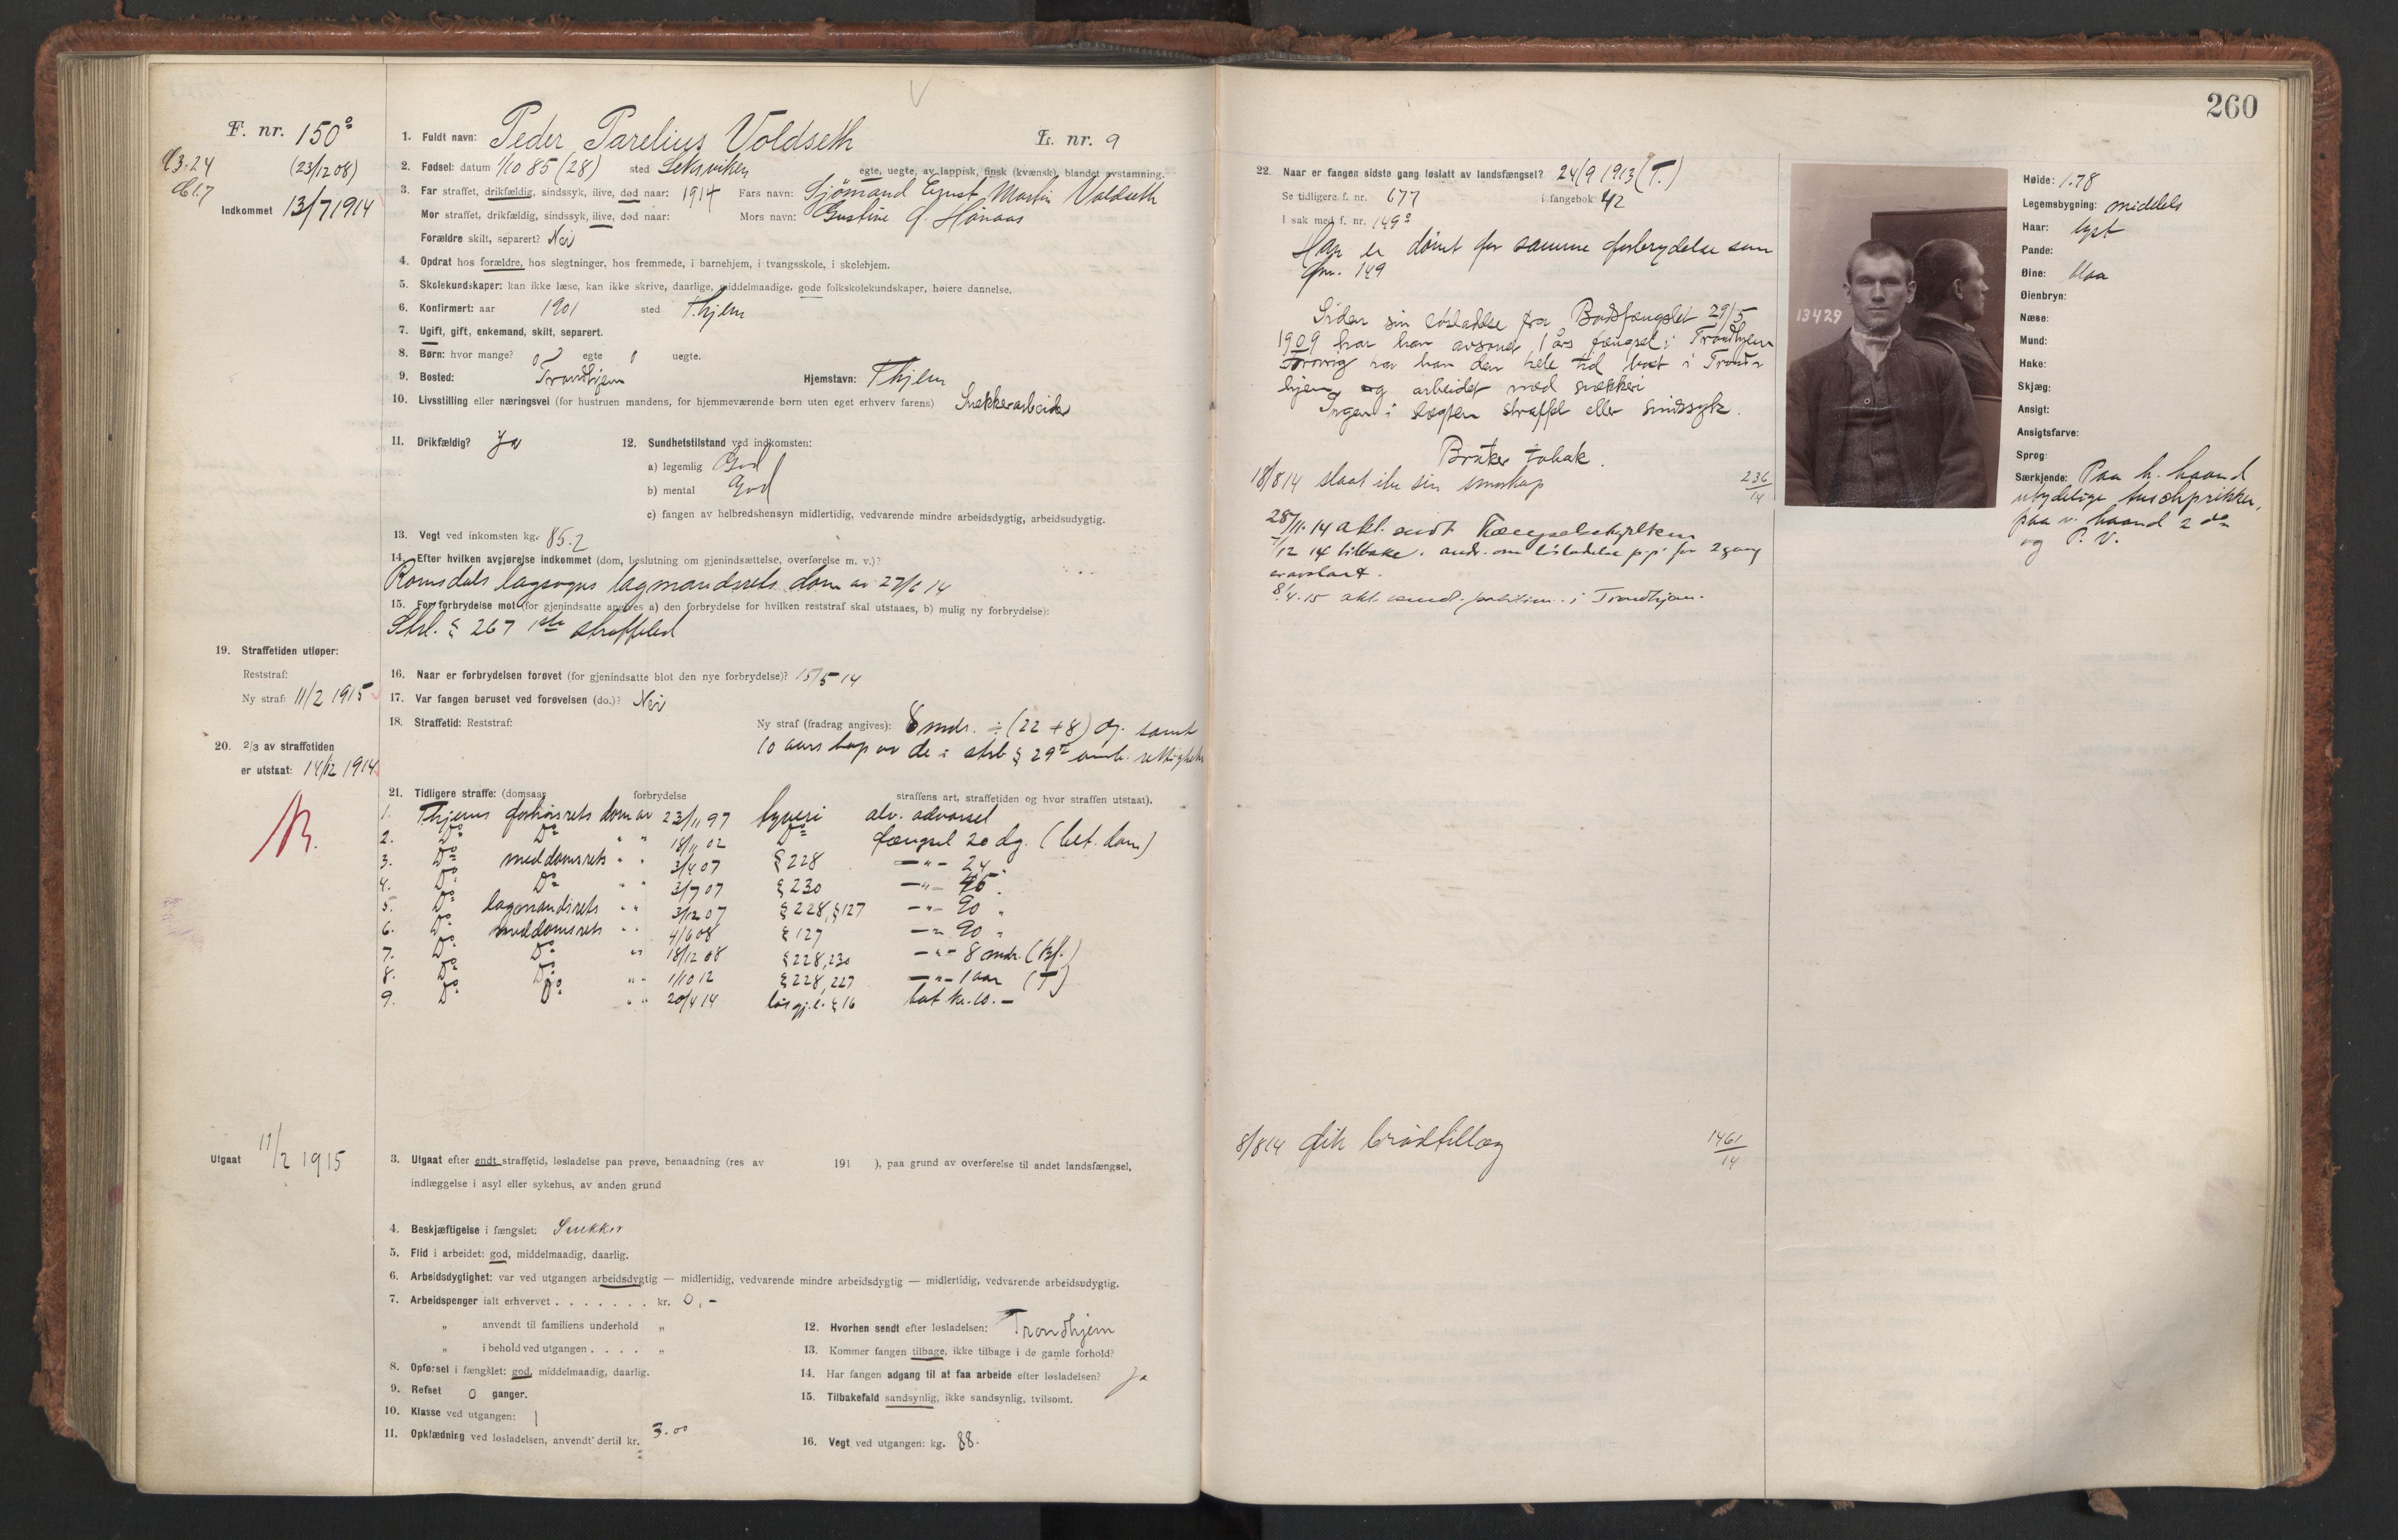 260
F. nr. 150
(23/12 08)
Indkommet 13/7 1914
L. nr. 9
1. Fuldt navn: Peder Parelius Voldseth
2. Fødsel: datum 1/10 85 (28) sted Leksviken egte, uegte, av lappisk, finsk (kvænsk), blandet avstamning.
3. Far straffet, drikfældig, sindssyk, ilive, død naar: 1914 Fars navn: Sjömand Ernst Martin Voldseth
Mor straffet, drikfældig, sindssyk, ilive, død naar: Mors navn: Gustine
Forældre skilt, separert? Nei
4. Opdrat hos forældre, hos slegtninger, hos fremmede, i barnehjem, i tvangsskole, i skolehjem.
5. Skolekundskaper: kan ikke læse, kan ikke skrive, daarlige, middelmaadige, gode folkskolekundskaper, høiere dannelse.
6. Konfirmert: aar 1901 sted Thjem
7. Ugift, gift, enkemand, skilt, separert.
8. Børn: hvor mange? 0 egte 0 uegte.
9. Bosted: Trondhjem Hjemstavn: Thjem
10. Livsstilling eller næringsvei (for hustruen mandens, for hjemmeværende børn uten eget erhverv farens) Snekkerarbeider
11. Drikfældig? Ja 12. Sundhetstilstand ved indkomsten:
a) legemlig God
b) mental God
c) fangen av helbredshensyn midlertidig, vedvarende mindre arbeidsdygtig, arbeidsudygtig.
13. Vegt ved inkomsten kg. 85.2
14. Efter hvilken avgjørelse indkommet (dom, beslutning om gjenindsættelse, overførelse m. v.)?
Romsdals lagsogns lagmandsrets dom av 27/6 14
15. For forbrydelse mot (for gjenindsatte angives a) den forbrydelse for hvilken reststraf skal utstaaes, b) mulig ny forbrydelse):
Strl. § 267 1ste straffeled
19. Straffetiden utløper:
Reststraf:
Ny straf: 11/2 1915
16. Naar er forbrydelsen forøvet (for gjenindsatte blot den nye forbrydelse)? 15/5 14
17. Var fangen beruset ved forøvelsen (do.)? Nei
18. Straffetid: Reststraf: Ny straf (fradrag angives): 8 mdr. ÷ (22 + 8) dg. samt
10 aars tap av de i strl § 29 omh. rettigheter
20. 2/3 av straffetiden
er utstaat: 14/12 1914
21. Tidligere straffe: (domsaar forbrydelse straffens art, straffetiden og hvor straffen utstaat).
1. Thjems forhörsrets dom av 23/11 97 tyveri alv. advarsel
2. Do Do " " 18/11 02 Do fængsel 20 dg. (bet. dom)
3. Do meddomsrets " " 3/4 07 § 228 — " — 24 "
4. Do Do " " 3/7 07 § 230 — " — 45 "
5. Do lagmandsrets " " 3/12 07 § 228, § 127 — " — 90 "
6. Do meddomsrets " " 4/6 08 § 127 — " — 90 "
7. Do Do " 18/12 08 § 228, 230 — " — 8 mdr. (Bf.)
8. Do Do " " 1/10 12 § 228, 227 — " — 1 aar (T)
9. Do Do " " 20/4 14 løsgj.l. § 16 bot kr. 10.—
Utgaat 11/2 1915
3. Utgaat efter endt straffetid, løsladelse paa prøve, benaadning (res av 191 ), paa grund av overførelse til andet landsfængsel,
indlæggelse i asyl eller sykehus, av anden grund
4. Beskjæftigelse i fængslet: Snekker
5. Flid i arbeidet: god, middelmaadig, daarlig.
6. Arbeidsdygtighet: var ved utgangen arbeidsdygtig — midlertidig, vedvarende mindre arbeidsdygtig — midlertidig, vedvarende arbeidsudygtig.
7. Arbeidspenger ialt erhvervet . . . . . . . kr. 0,-
„ anvendt til familiens underhold „
„ i behold ved utgangen . . . . „
8. Opførsel i fængslet: god, middelmaadig, daarlig.
9. Refset 0 ganger.
10. Klasse ved utgangen: 1
11. Opklædning ved løsladelsen, anvendt dertil kr. 3.00
12. Hvorhen sendt efter løsladelsen: Trondhjem
13. Kommer fangen tilbage, ikke tilbage i de gamle forhold?
14. Har fangen adgang til at faa arbeide efter løsladelsen? Ja
15. Tilbakefald sandsynlig, ikke sandsynlig, tvilsomt.
16. Vegt ved utgangen: kg. 88.
22. Naar er fangen sidste gang løslatt av landsfængsel? 24/9 1913 (T.)
Se tidligere f. nr. 677 i fangebok 42
I sak med f. nr. 149
Han er dömt for samme forbrydelse som
fnr. 149
Siden sin løsladelse fra Bodsfængslet 29/5
1909 har han avsonet 1 års fængsel i Trondhjem
Forøvrig har han den hele tid boet i Trond-
hjem og arbeidet med snekkeri
Ingen i slegten straffet eller sindssyk.
Bruker tobak.
18/8 14 slaat ihj sin 236/14
28/11. 14 akt. sendt Fængselsstyrelsen
7/12 14 tilbake. ands. om løsladelse p.p. for 2 gang
er avslaat.
8/4. 15 akt. sendt politim. i Trondhjem.
8/8 14 fik brödtillæg 1461/14
13429
Høide: 1.78
Legemsbygning: middels
Haar: lyst
Pande:
Øine: blaa
Øienbryn:
Næse:
Mund:
Hake:
Skjæg:
Ansigt:
Ansigtsfarve:
Sprog:
Særkjende: Paa h. haand
utydelige tuschprikker,
paa v. haand 2 do
og P. V.